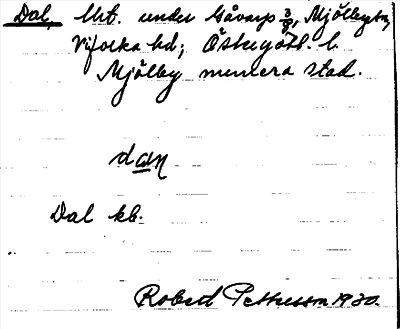 Dal, Utt. under Gåvarp 3/8, Mjölby sn,
Vifolka hd; Östergötl. l.
Mjölby numera stad.
dan
Dal kb.
Robert Pettersson 1930.